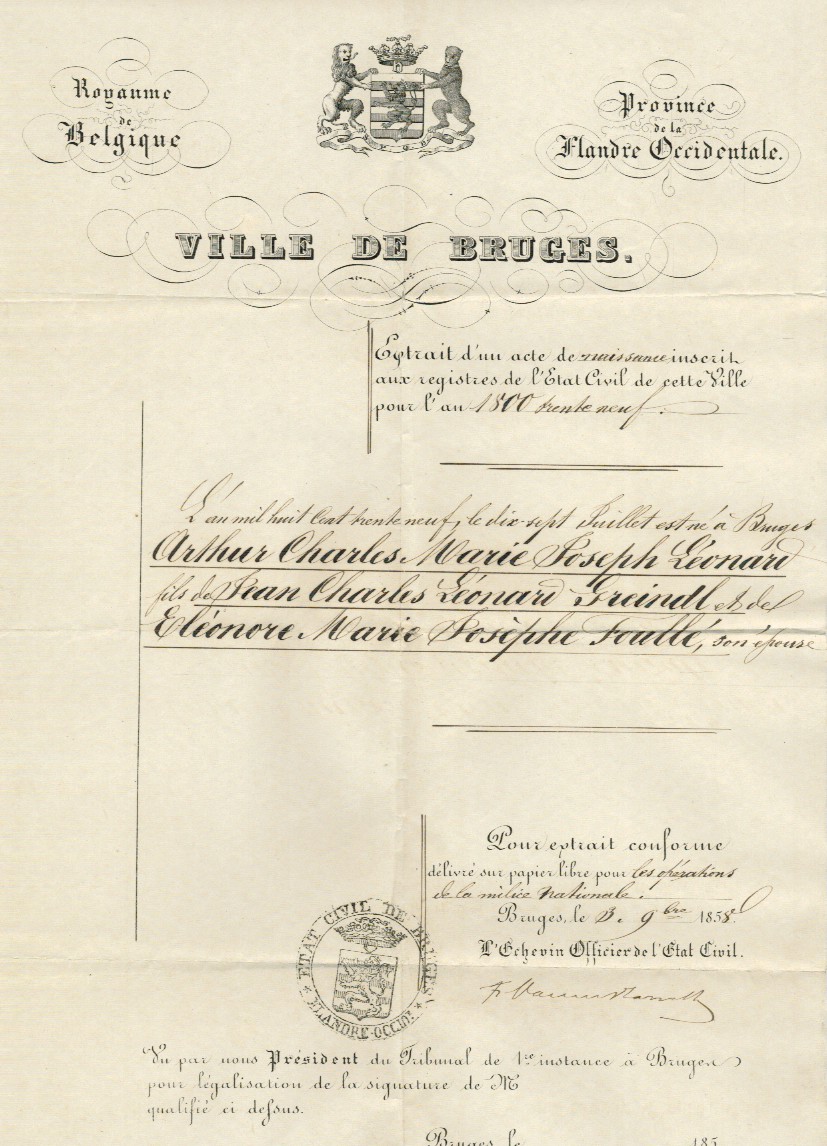 Royaume
de
Belgique
Province
de la
Flandre Occidentale.
VILLE DE BRUGES.
Extrait d'un acte de naissance inscrit
aux registres de l'Etat Civil de cette Ville
pour l'an 1800 trente neuf.
L'an mil huit Cent trente neuf, le dix-sept Juillet est né à Bruges
Arthur Charles Marie Joseph Léonard
fils de Jean Charles Léonard Greindl et de
Eléonore Marie Josèphe Foullé, son épouse
Pour extrait conforme
délivré sur papier libre pour les opérations
de la milice Nationale.
Bruges, le 3. 9bre 1858
L'Echevin Officier de l'Etat Civil.
ETAT CIVIL DE BRUGES
FLANDRE-OCCID.
Vu par nous Président du Tribunal de 1re instance à Bruges
pour légalisation de la signature de M
qualifié ci dessus.
Bruges le 185